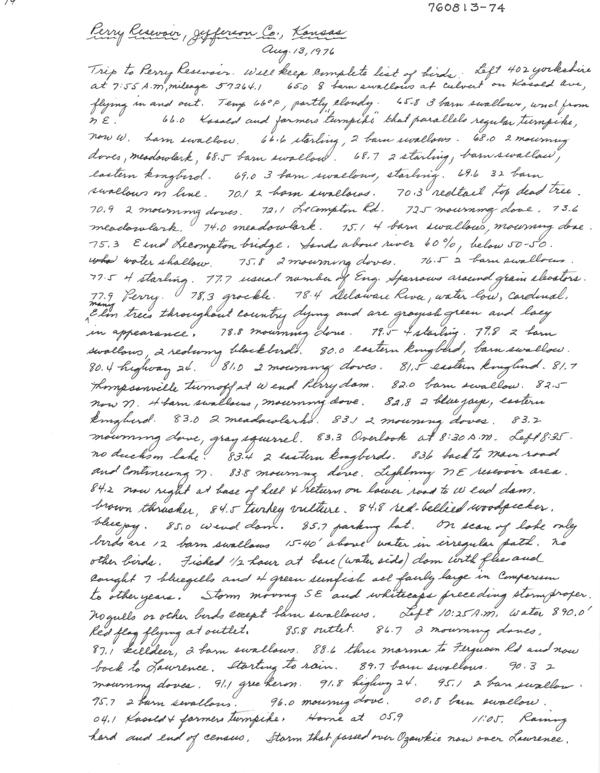 760813-74
Perry Resevoir, Jefferson Co., Kansas
Aug. 13, 1976
Trip to Perry Resevoir. Will keep complete list of birds. Left 402 yorkshire
at 7:55 A.M, mileage 57264.1 65.0 8 barn swallows at culvert on Kasold Ave,
flying in and out. Temp 66°F, partly cloudy. 65.8 3 barn swallows, wind from
NE. 66.0 Kasold and farmers "turnpike" that parallels regular turnpike,
now W. barn swallow. 66.6 starling, 2 barn swallows. 68.0 2 mourning
doves, meadowlark, 68.5 barn swallow. 68.7 2 starling, barn swallow,
eastern kingbird. 69.0 3 barn swallows, starling. 69.6 32 barn
swallows on line. 70.1 2 barn swallows. 70.3 redtail top dead tree.
70.9 2 mourning doves. 72.1 Lecompton Rd. 72.5 mourning dove. 73.6
meadowlark. 74.0 meadowlark. 75.1 4 barn swallows, mourning dove.
75.3 E end Lecompton bridge. Sand above river 60%, below 50-50.
water shallow. 75.8 2 mourning doves. 76.5 2 barn swallows.
77.5 4 starling. 77.7 usual number of Eng. Sparrows around grain elevators.
77.9 Perry. 78.3 grackle. 78.4 Delaware River, water low, cardinal.
many Elm trees throughout country dying and are grayish green and lacy
in appearance. 78.8 mourning dove. 79.5 4 starling. 79.8 2 barn
swallows, 2 redwing blackbirds. 80.0 eastern kingbird, barn swallow.
80.4 highway 24. 81.0 2 mourning doves. 81.5 eastern kingbird. 81.7
Thompsonville turnoff at W end Perry dam. 82.0 barn swallow. 82.5
now N. 4 barn swallows, mourning dove. 82.8 2 blue jays, eastern
kingbird. 83.0 2 meadowlarks. 83.1 2 mourning doves. 83.2
mourning dove, gray squirrel. 83.3 Overlook at 8:30 A.M. Left 8:35.
no ducks on lake. 83.4 2 eastern kingbirds. 83.6 back to main road
and continuing N. 83.8 mourning dove. Lightning NE resevoir area.
84.2 now right at base of hill & return on lower road to W end dam.
brown thrasher, 84.5 turkey vulture. 84.8 red-bellied woodpecker.
bluejay. 85.0 W end dam. 85.7 parking lot. On scan of lake only
birds are 12 barn swallows 15-40' above water in irregular path. No
other birds. Fished 1/2 hour at base (water side) dam with flies and
caught 7 bluegills and 4 green sunfish all fairly large in comparison
to other years. Storm moving SE and whitecaps preceding storm proper.
No gulls or other birds except barn swallows. Left 10:25 A.M. Water 890.0'
Red flag flying at outlet. 85.8 outlet. 86.7 2 mourning doves.
87.1 killdeer, 2 barn swallows. 88.6 thru marina to Ferguson Rd and now
back to Lawrence. Starting to rain. 89.7 barn swallows. 90.3 2
mourning doves. 91.1 gre heron. 91.8 highway 24. 95.1 2 barn swallow.
95.7 2 barn swallows. 96.0 mourning dove. 00.8 barn swallow.
04.1 Kasold & farmers turnpike. Home at 05.9 11:05. Raining
hard and end of census. Storm that passed over Ozawkie now over Lawrence.